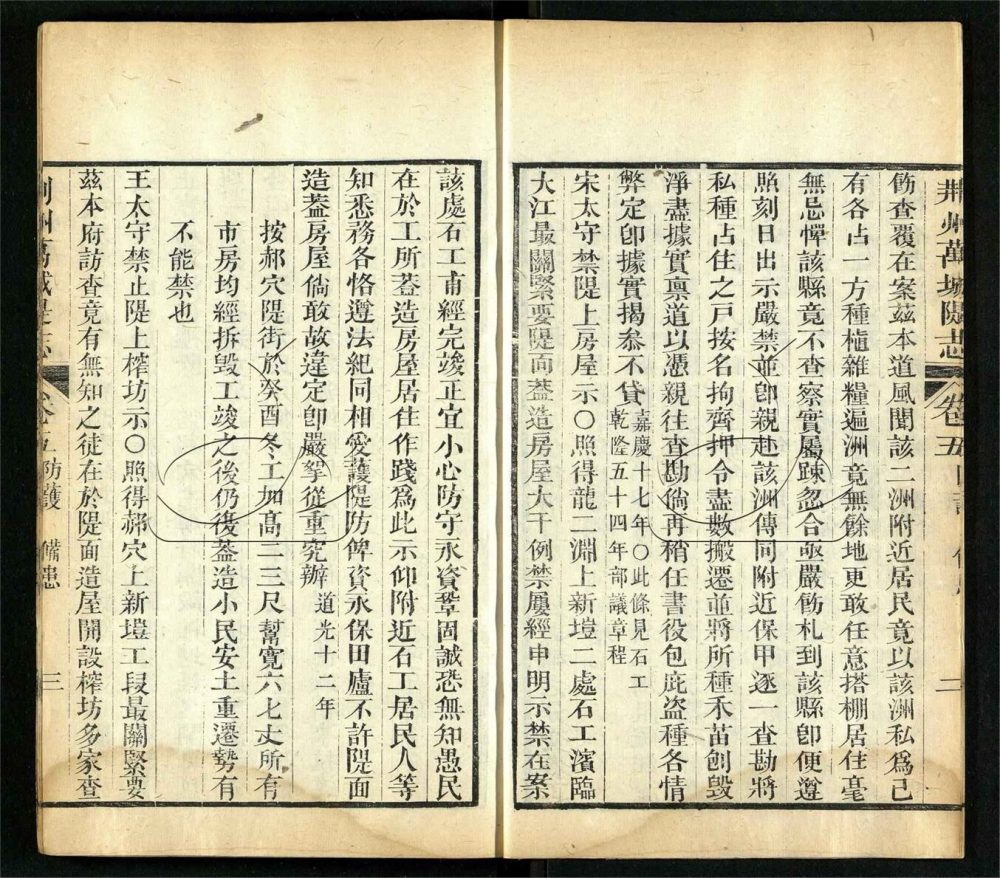 荆州萬城隄志 卷五
飭查覆在案茲本道風聞該二洲附近居民竟以該洲私為己
有各占一方種植雜糧遍洲竟無餘地更敢任意搭棚居住毫
無忌憚該縣竟不查察實屬踈忽合亟嚴飭札到該縣卽便遵
照刻日出示嚴禁並卽親赴該洲傳同附近保甲逐一查勘將
私種占住之戸按名拘齊押令盡數搬遷並將所種禾苗刨毀
淨盡據實禀道以憑親往查勘倘再稍任書役包庇盜種各情
弊定卽據實揭叅不貸
嘉慶十七年〇此條見石工
乾隆五十四年部議章程
宋太守禁隄上房屋示〇照得龍二淵上新塏二處石工濱臨
大江最關緊要隄面葢造房屋大干例禁屢經申明示禁在案
該處石工甫經完竣正宜小心防守永資鞏固誠恐無知愚民
在於工所葢造房屋居住作踐爲此示仰附近石工居民人等
知悉務各恪遵法紀同相愛護隄防俾資永保田廬不許隄面
造葢房屋倘敢故違定卽嚴拏從重究辦
道光十二年
按郝穴隄街於癸酉冬工加高二三尺幫寬六七丈所有
市房均經拆毀工竣之後仍復葢造小民安土重遷勢有
不能禁也
王太守禁止隄上榨坊示〇照得郝穴上新塏工段最關緊要
茲本府訪查竟有無知之徒在於隄面造屋開設榨坊多家查
荆州萬城隄志 卷五 防護 備患 三